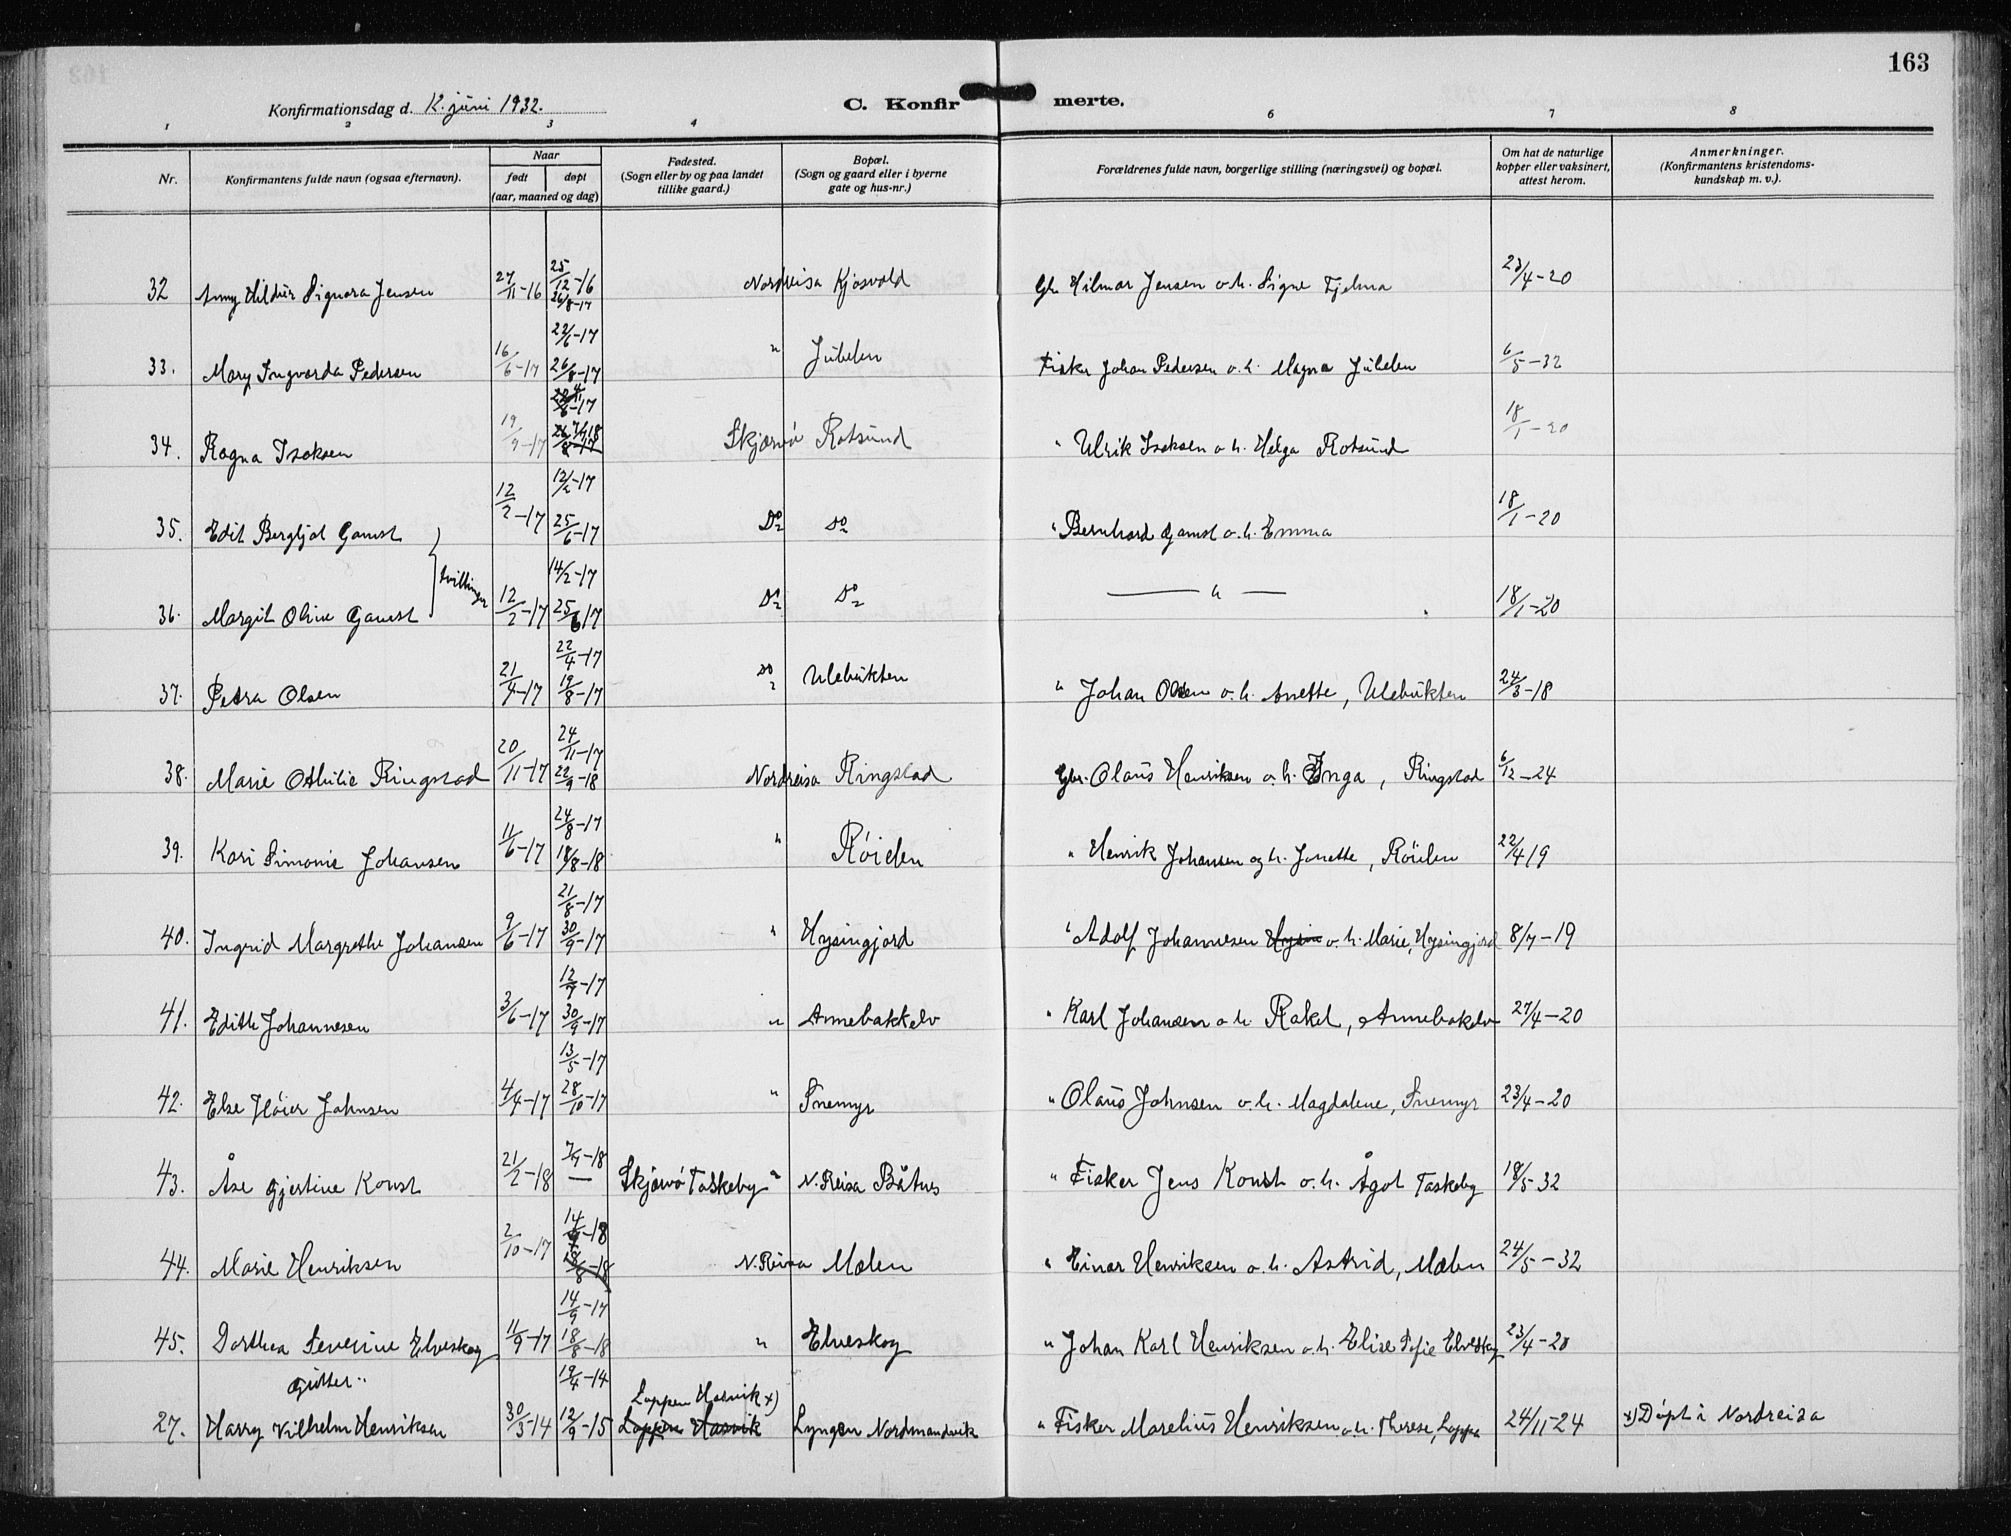 163
Konfirmationsdag d. 12. juni 1932.
C. Konfirmerte.
1 2 3 4 6 7 8
Nr.
Konfirmantens fulde navn (ogsaa efternavn).
Naar
født døpt
(aar, maaned og dag)
Fødested.
(Sogn eller by og paa landet
tillike gaard.)
Bopæl.
(Sogn og gaard eller i byerne
gate og hus-nr.)
Forældrenes fulde navn, borgerlige stilling (næringsvei) og bopæl.
Om hat de naturlige
kopper eller vaksinert,
attest herom.
Anmerkninger.
(Konfirmantens kristendoms-
kundskap m. v.).
32 Anny Hildur Signora Jensen 27/11-16 25/12-16 26/8-17 Nordreisa Kjosvold Gbr Hilmar Jensen o.h. Signe Fjelma 23/4-20
33. Mary Ingvarda Pedersen 16/6-17 22/6-17 26/8-17 " Jubelen Fisker Johan Pedersen o.h. Magna Jubelen 6/5-32
34. Ragna Isaksen 19/9-17 Skjærvö Rotsund " Ulrik Isaksen o.h. Helga Rotsund 18/1-20
35. Edit Bergljot Gamst 12/2-17 12/2-17 25/6-17 Do Do " Bernhard Gamst o.h. Emma 18/1-20
tvillinger
36. Margit Oline Gamst 12/2-17 14/2-17 25/6 17 Do Do — " — 18/1-20
37. Petra Olsen 21/4-17 22/4-17 19/8-17 Do Ulebukten " Johan Olsen o.h. Anette, Ulebukten 24/3-18
38. Marie Othilie Ringstad 20/11-17 24/11-17 22/9-18 Nordreisa Ringstad Gbr. Olaus Henriksen o.h. Inga, Ringstad 6/12-24
39. Kari Simonie Johansen 11/6-17 24/8-17 18/8-18 " Röielen " Henrik Johansen og h. Jonette, Röielen 22/4 19
40. Ingrid Margrethe Johansen 9/6-17 21/8-17 30/9-17 " Hysingjord " Adolf Johannesen o.h. Marie, Hysingjord 8/7-19
41. Edith Johannesen 3/6-17 12/7-17 30/9-17 " Annebakkelv " Karl Johansen o.h. Rakel, Annebakelv 27/4-20
42. Else Höier Johnsen 4/4-17 13/5-17 28/10-17 " Snemyr " Olaus Johnsen o.h. Magdalene, Snemyr 23/4-20
43. Åse Gjertine Konst 21/2-18 7/4-18 — Skjærvö Taskeby " N. Reisa Båtnes " Fisker Jens Konst o.h. Ågot Taskeby 18/5-32
44. Marie Henriksen 2/10-17 14/4-18 18/8-18 N. Reisa Mælen " Einar Henriksen o.h. Astrid, Mælen 24/5-32
45. Dorthea Severine Elveskog 11/9-17 14/9-17 18/8-18 " Elveskog " Johan Karl Henriksen o.h. Elise Sofie Elveskog 23/4-20
Gutter..
27. Harry Vilhelm Henriksen 30/3-14 19/4-14 12/9-15 Loppen Hasvik x) Loppen Hasvik Lyngen Nordmandvik " Fisker Marelius Henriksen o.h. Therese, Loppa 24/11-24 x) Döpt i Nordreisa